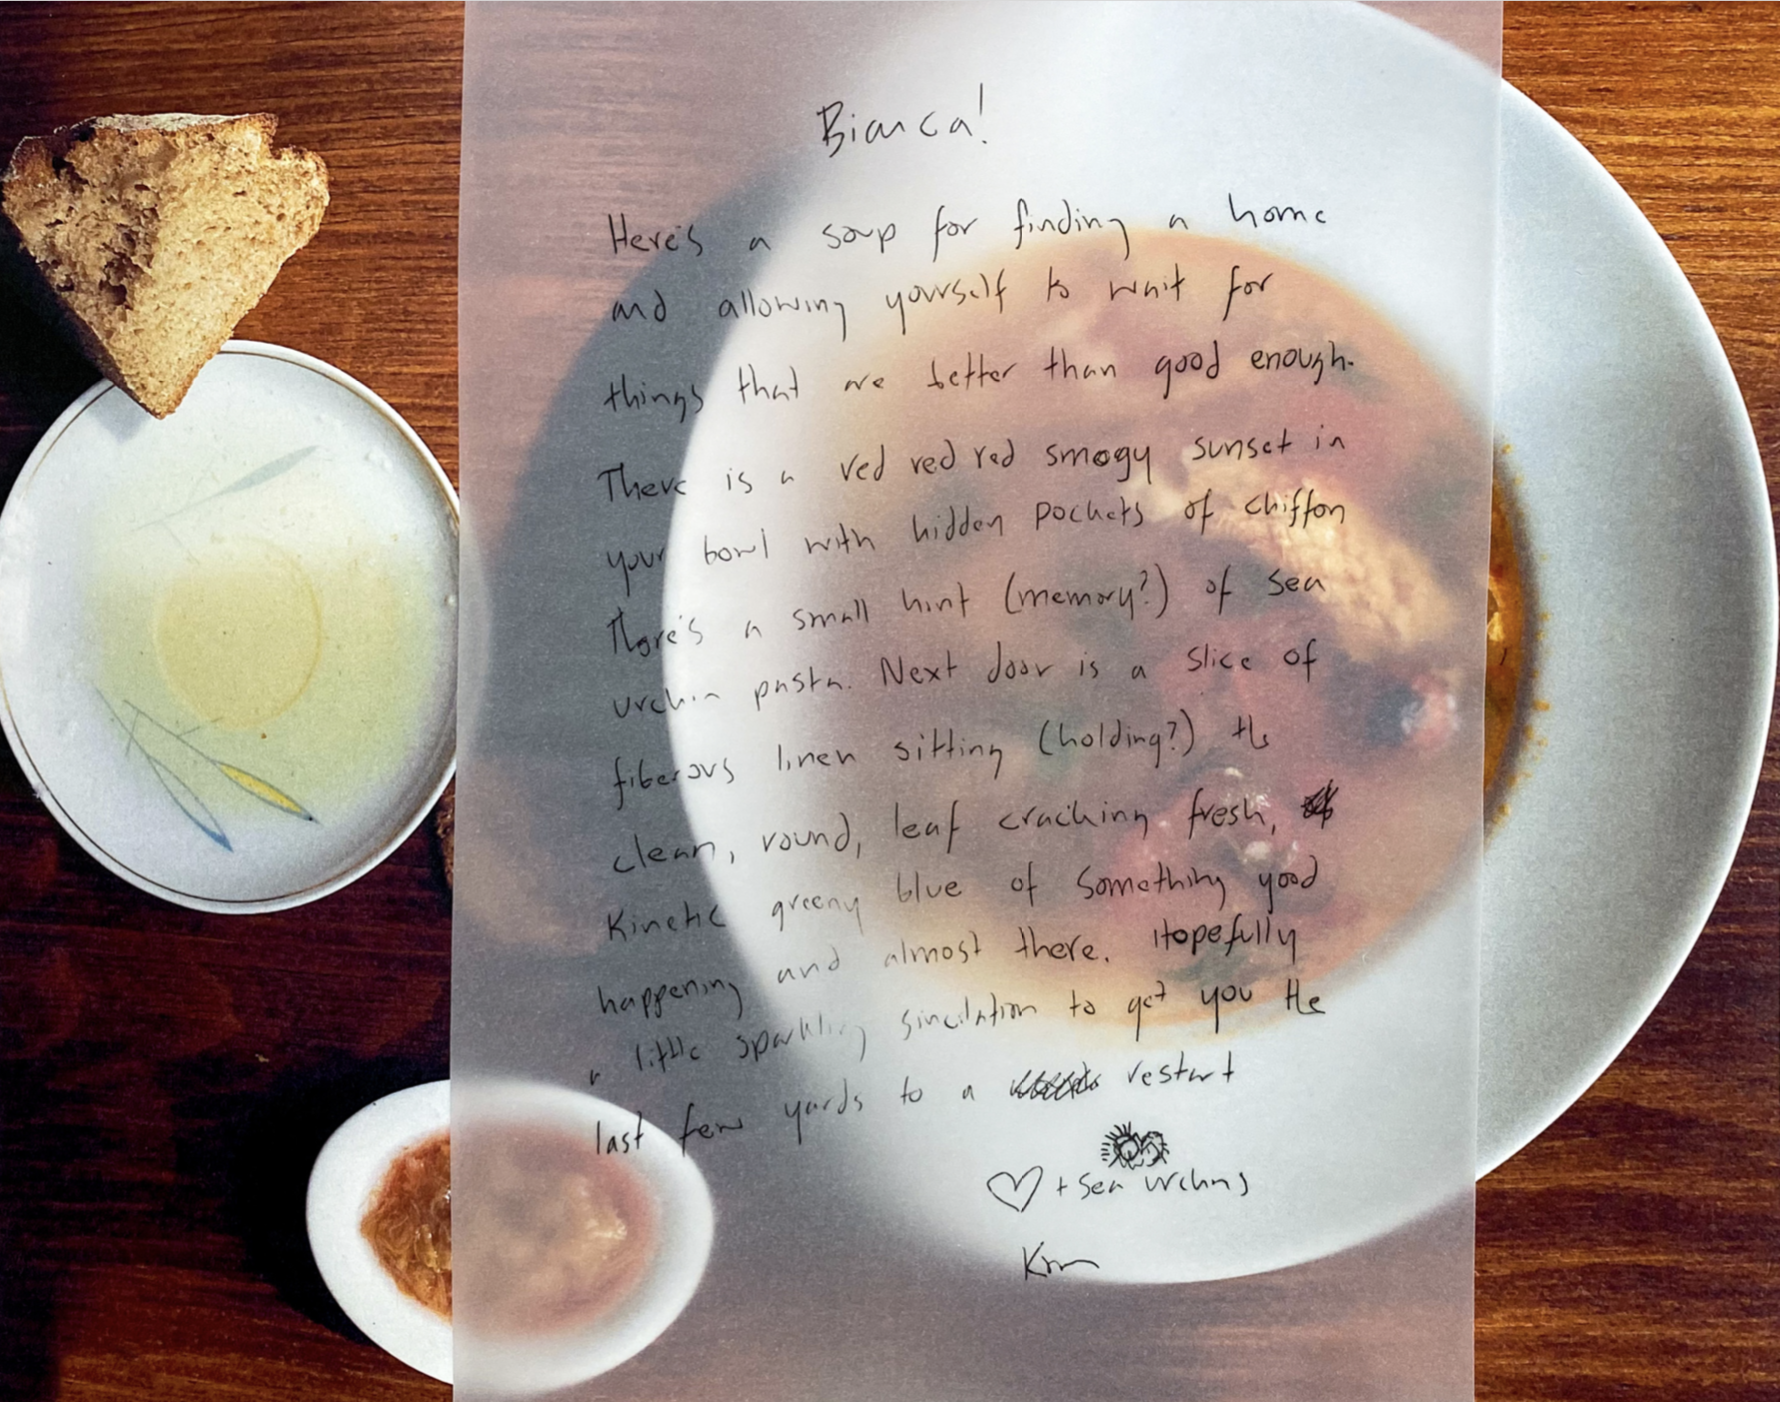 Bianca!
Here's a soup for finding a home
and allowing yourself to wait for
things that are better than good enough.
There is a red red red smogy sunset in
your bowl with hidden pockets of chiffon
There's a small hint (memory?) of sea
urchin pasta. Next door is a slice of
fiberous linen sitting (holding?) the
clean, round, leaf cracking fresh,
Kinetic greeny blue of something good
happening and almost there. Hopefully
a little sparkling to get you the
last few yards to a restart
+ sea urchins